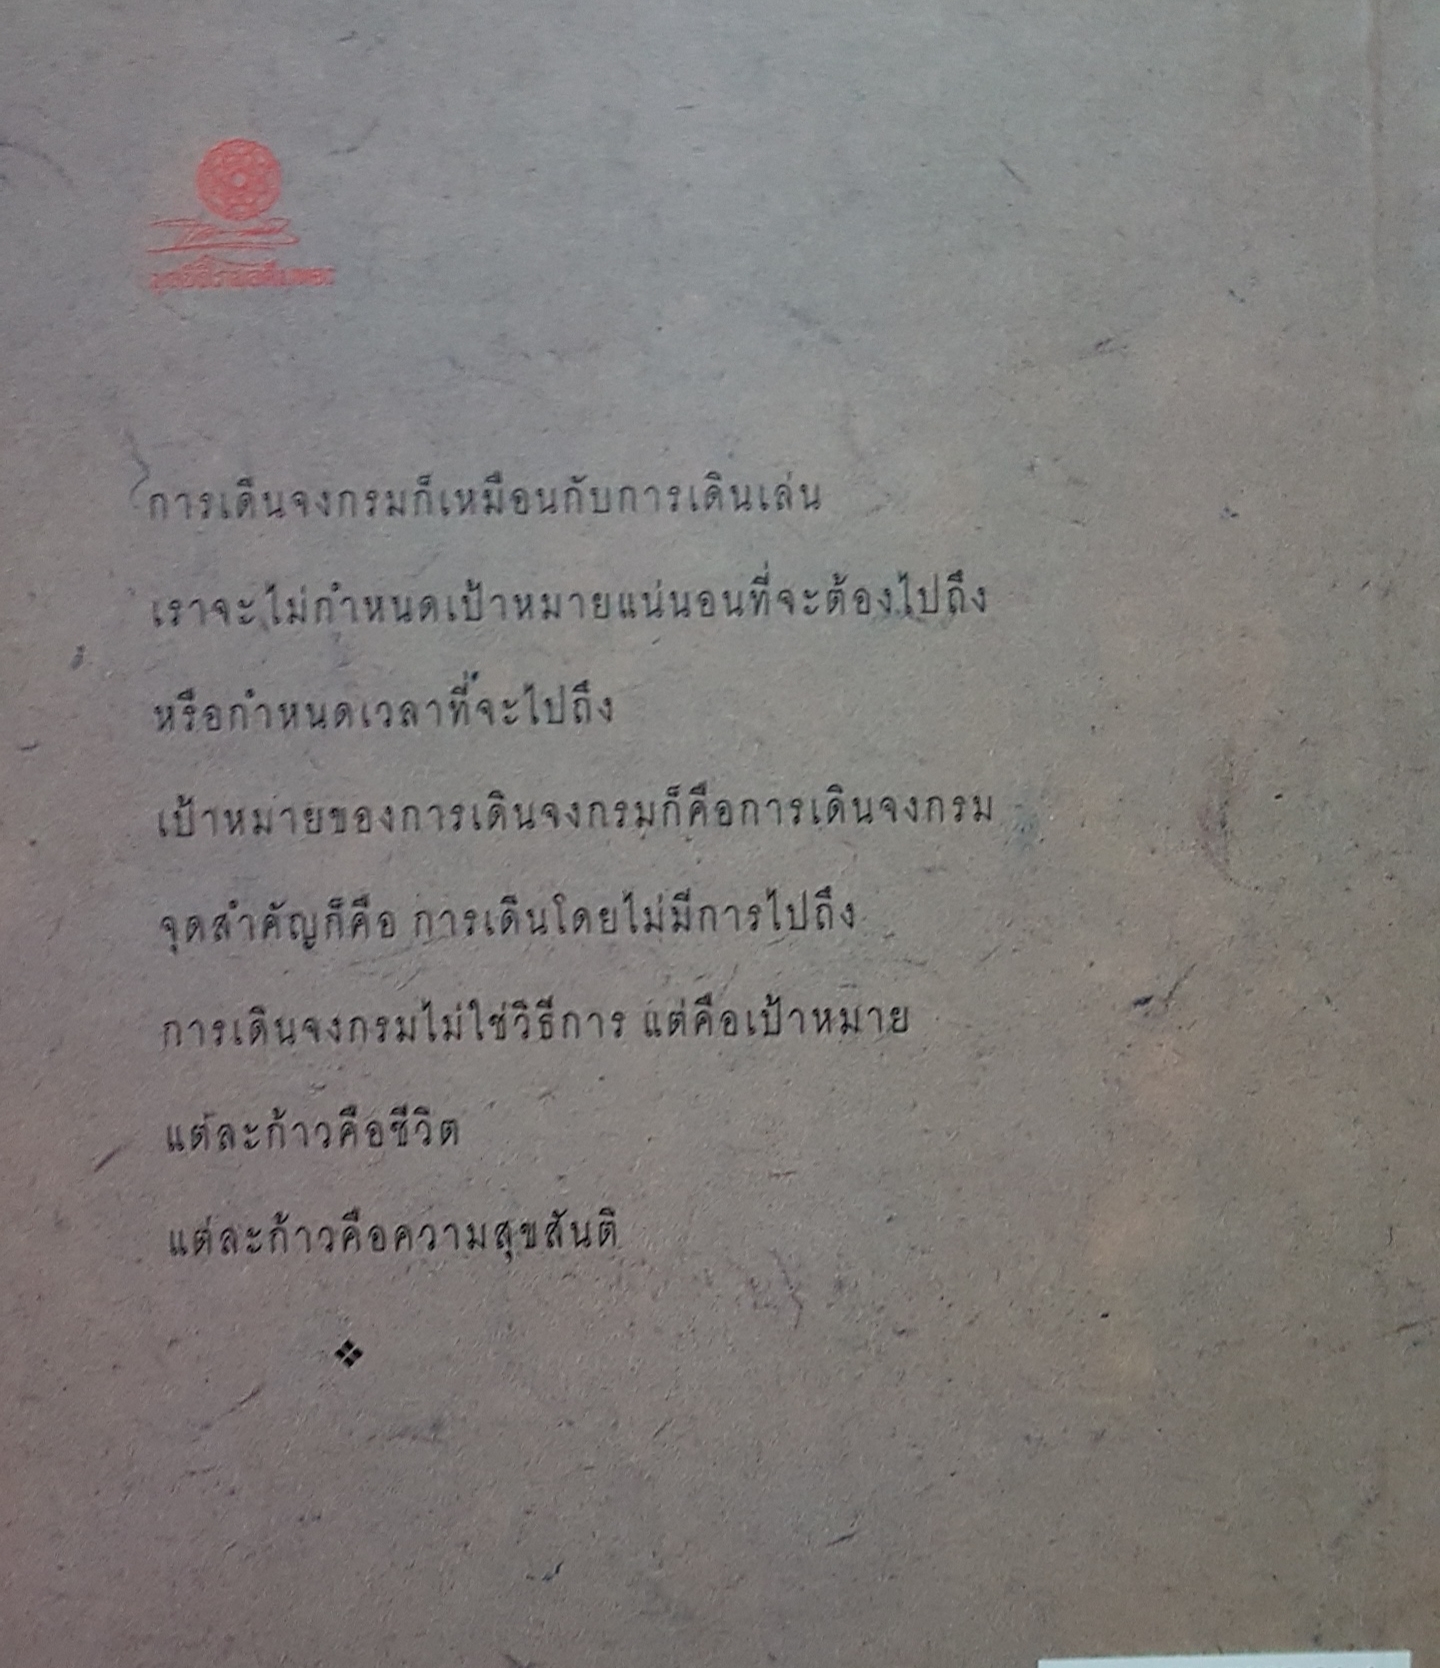 มูลนิธิโกมลคีมทอง
การเดินจงกรมก็เหมือนกับการเดินเล่น
เราจะไม่กำหนดเป้าหมายแน่นอนที่จะต้องไปถึง
หรือกำหนดเวลาที่จะไปถึง
เป้าหมายของการเดินจงกรมก็คือการเดินจงกรม
จุดสำคัญก็คือ การเดินโดยไม่มีการไปถึง
การเดินจงกรมไม่ใช่วิธีการ แต่คือเป้าหมาย
แต่ละก้าวคือชีวิต
แต่ละก้าวคือความสุขสันติ